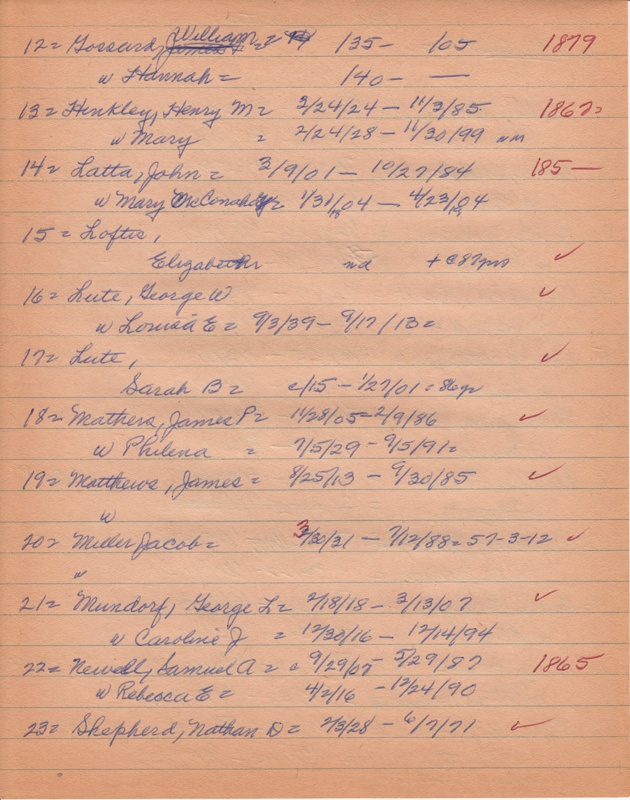 12 = Gossard, William = 135 - 105 1879
w Hannah = 140 - —
13 = Hinkley, Henry M = 3/24/24 - 11/3/85 1862
w Mary = 2/24/28 - 11/30/99 nm
14 = Latta, John = 3/9/01 - 10/27/84 185—
w Mary McConahey = 1/31/04 - 4/23/04
15 = Loftis,
Elizabeth nd + @ 87 yrs ✓
16 = Lute, George W ✓
w Louisa E = 9/3/39 - 9/17/13 =
17 = Lute, ✓
Sarah B = c/15 - 1/27/01 = 86 yr
18 = Mathers, James P = 11/28/05 - 2/9/86 ✓
w Philena = 7/5/29 - 9/5/91 =
19 = Matthews, James = 8/25/13 - 9/30/85 ✓
w
20 = Miller Jacob = 3/30/31 - 7/12/88 = 57-3-12 ✓
"
21 = Mundorf, George L = 2/18/18 - 3/13/07 ✓
w Caroline J = 12/30/16 - 12/14/94
22 = Newell, Samuel A = 9/29/07 - 5/29/87 1865
w Rebecca E = 4/2/16 - 12/24/90
23 = Shepherd, Nathan D = 2/3/28 - 6/7/71 ✓